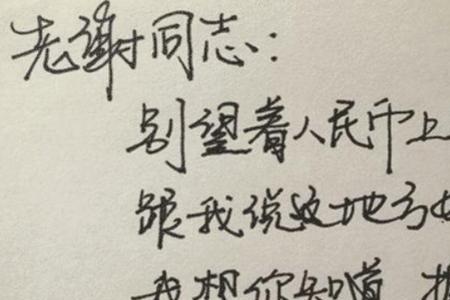 老谢同志：
别望着人民币上
跟我说这地方
我想你知道